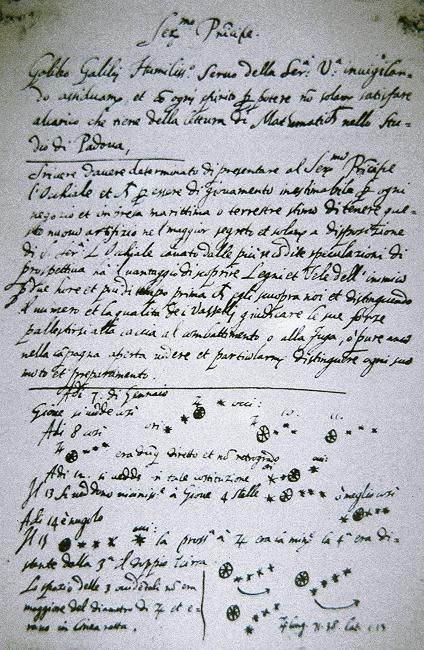 Ser.mo Principe.
Galileo Galilej Humiliss.o Servo della Ser.a V.a invigilan-
do assiduam.te et cõ ogni spirito p potere nõ solam.te satisfare
alcarico che tiene della lettura di Mathematich nello Stu-
dio di Padova,
Scrivere davere determinato di presentare al Ser.mo Principe
l'Occhiale et p essere di giovamento inestimabile p ogni
negozio et impresa marittima o terrestre stimo di tenere que-
sto nuovo artifizio nel maggior segreto et solam.te a disposizione
di S. Ser.a L'Occhiale cavato dalle più recõdite speculazioni di
prospettiva ha il vantaggio di scoprire Legni et Vele dell' inimico
p due hore et più di tempo prima degli scuopra noi et distinguendo
il numero et la qualità dei Vasselli giudicare le sue forze
pallestirsi alla caccia al combattimento o alla fuga, o pure anco
nella cãpagna aperta vedere et particolarm.te distinguere ogni suo
moto et preparamento.
Adi 7. di Gennaio
Giove si vede così
Adi 8 così
era dũq diretto et nõ retrogrado
Adi 12. si vedde in tale costituzione
Il 13 si veddono vicinissi.e à Giove 4 stelle è meglio così
Adi 14 è nugolo
Il 15 la pross.a à era la min.e la 4.a era di-
stante dalla 3.a il doppio
Lo spazio delle 3 occidentali nõ era
maggiore del diametro di et e-
rano in linea retta.
long. 71.38 Lat. 1.13